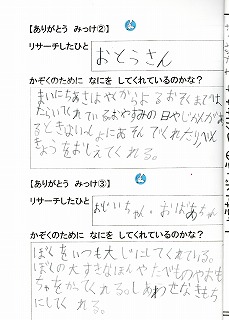 【ありがとう みっけ②】
リサーチしたひと
おとうさん
かぞくのために なにを してくれているのかな？
まいにちあさはやくからよるおそくまではたらいてくれているおやすみの日やじかんがあるときないっしょにあそんでくれたりべんきょうをおしえてくれる。
【ありがとう みっけ③】
リサーチしたひと
おじいちゃん・おばあちゃん
かぞくのために なにを してくれているのかな？
ぼくをいつも大じにしてくれている。
ぼくの大すきなほんやたべものやおも
ちゃをかってくれる。しあわせなきもち
にしてくれる。